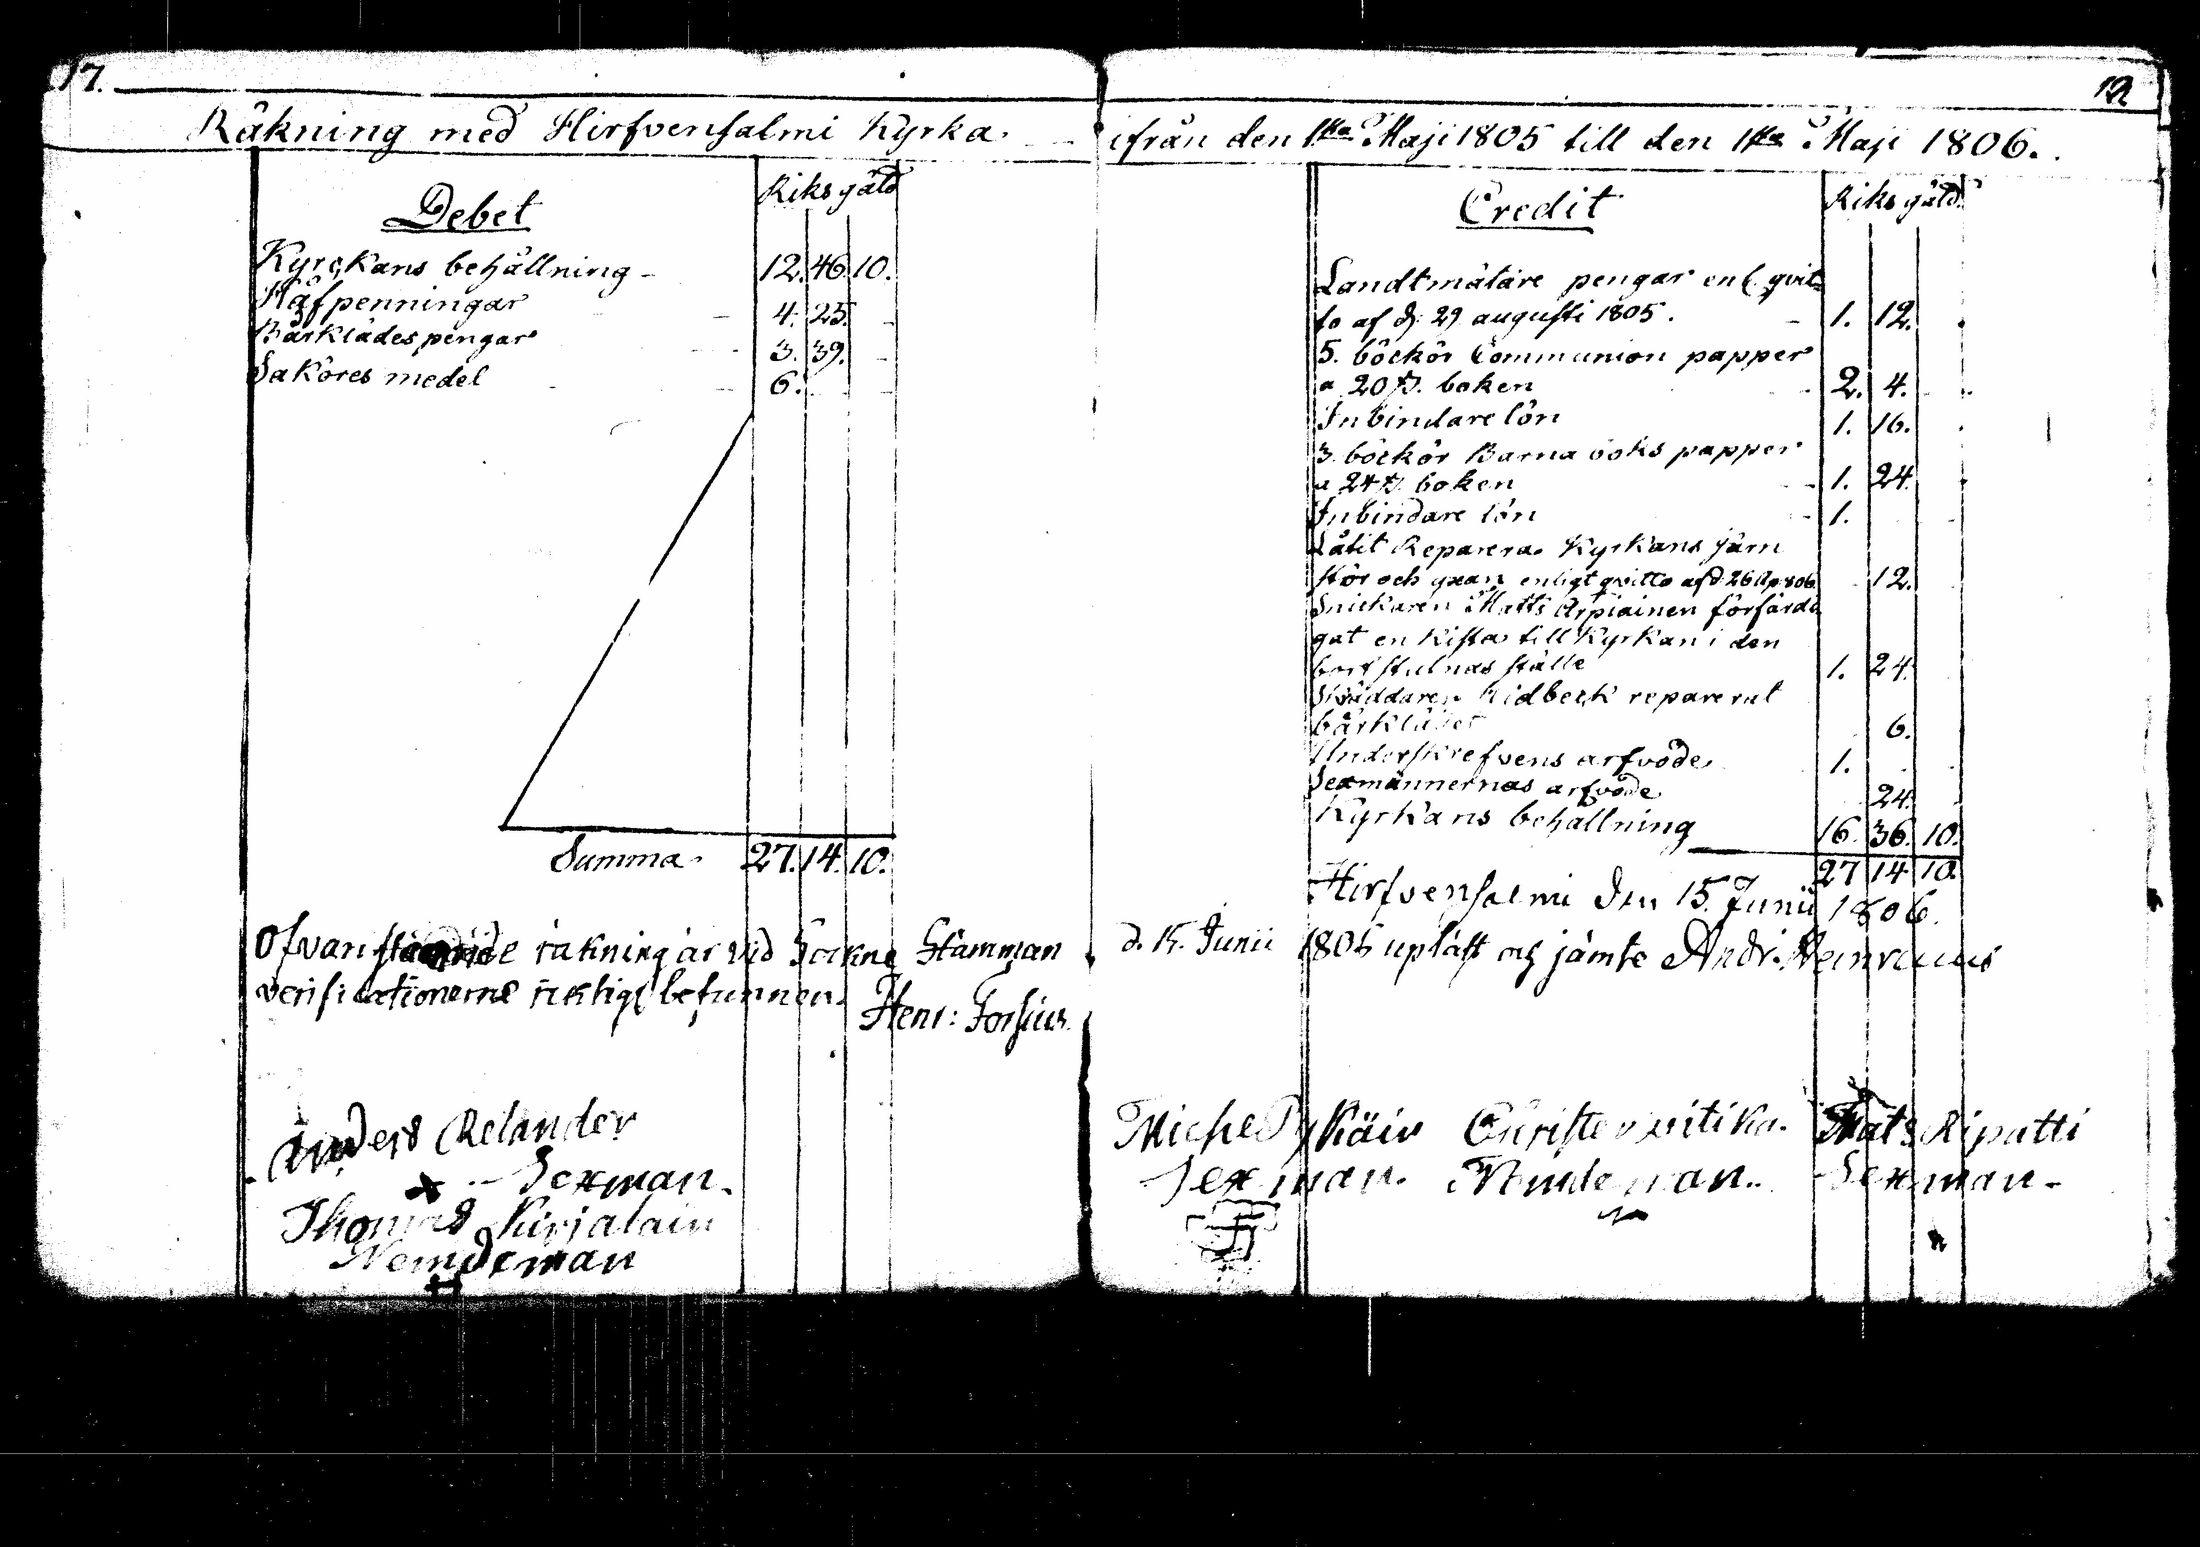 17.
Räkning med Hirfvensalmi Kyrka.
Debet
Riksgäld
Kyrckans behållning - 12. 46. 10.
Håfpenningar - 4. 25. -
Bårklädespengar - 3. 39. -
Saköres medel - 6. - -
Summa. 27. 14. 10.
Ofvanstående räkning är vid Sockne Stämman
verificationerne riktige befunnen.
Henr: Forsius.
Anders Relander
x - Sexman.
Thomas Kirjalain
Nemdeman
12
ifrån den 1sta Maji 1805 till den 1sta Maji 1806.
Credit
Riksgäld.
Landtmätare pengar enl. qvit-
to af d. 29 augusti 1805. - 1. 12.
5. böckör Communion papper
a 20 s. boken 2. 4.
Inbindare lön 1. 16.
3. böckör Barna boks papper
a 24 s. boken - 1. 24.
Inbindare lön - 1.
Låtit Reparera Kyrkans järn
stör och enligt qvitto af d. 26 Ap. 806 12.
Snickaren Matts Arpiainen förfärdi
gat en Kista till Kyrkan i den
bortstulnas ställe 1. 24.
Skräddaren Lidbeck reparerat
bårklädet 6.
Underskrefvens arfvode 1.
Sexmännernas arfvode 24.
Kyrkans behållning 16. 36. 10.
27 14 10
Hirfvensalmi den 15. Junii 1806.
d. 15. Junii 1806 upläst och jämte Andr.
Michel Pykäin Christer vitika. Mats Ripatti
Sexman. Nemdeman. Sexman.